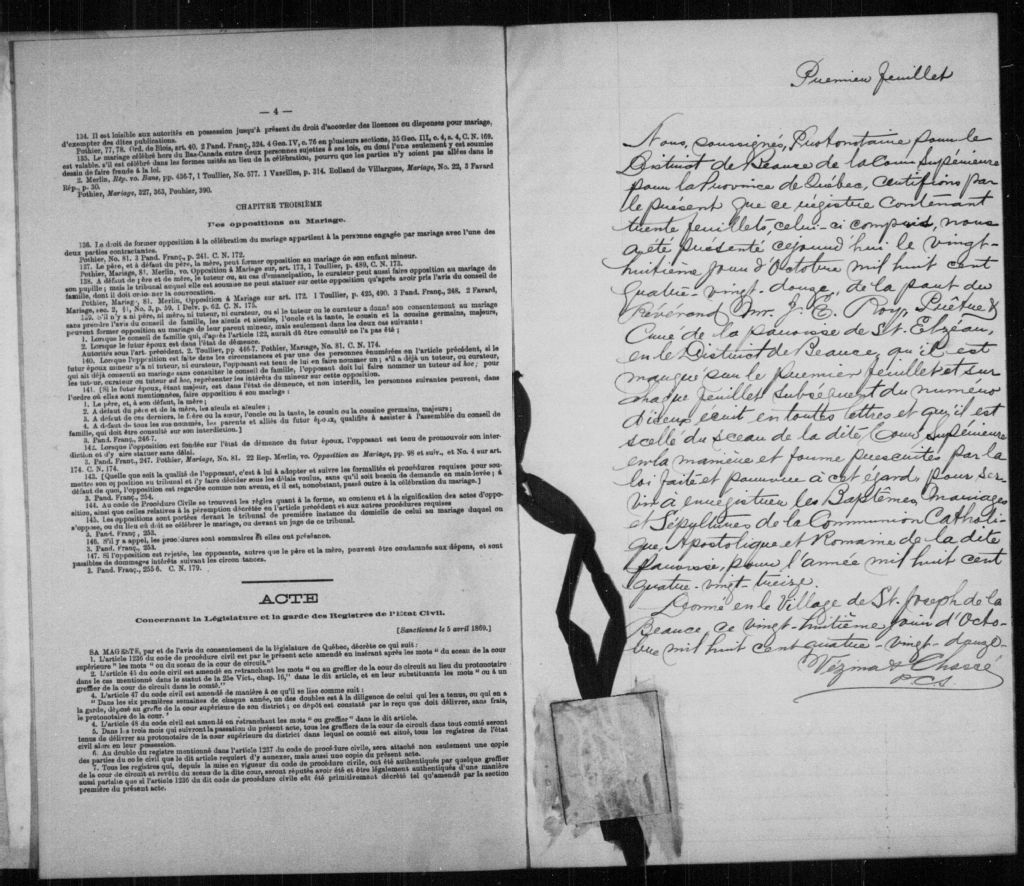 — 4 —
134. Il est loisible aux autorités en possession jusqu'à présent du droit d'accorder des licences ou dispenses pour mariage,
d'exempter des dites publications.
Pothier, 77, 78. Ord. de Blois, art. 40, 2 Pand. Franç., 324. 4 Geo. IV, c. 76 en plusieurs sections, 35 Geo. III, c. 4, s. 4, C. N. 169.
135. Le mariage célébré hors du Bas-Canada entre deux personnes sujettes à ses lois, ou dont l'une seulement y est soumise
est valable, s'il est célébré dans les formes usités au lieu de la célébration, pourvu que les parties n'y soient pas allées dans le
dessin de faire fraude à la loi.
2. Merlin, Rép. vo. Bans, pp. 436-7, 1 Toullier, No. 577. 1 Vazeilles, p. 314. Rolland de Villargues, Mariage, No. 22, 3 Favard
Rép., p. 30.
Pothier, Mariage, 327, 363, Pouhier, 390.
CHAPITRE TROISIÈME
Des oppositions au Mariage.
136. Le droit de former opposition à la célébration du mariage appartient à la personne engagée par mariage avec l'une des
deux parties contractantes.
Pothier, No. 81. 3 Pand. Franç., p. 241. C. N. 172.
137. Le père, et à défaut du père, la mère, peut former opposition au mariage de son enfant mineur.
Pothier, Mariage, 81. Merlin, vo. Opposition à Mariage sur, art. 173, 1 Toullier, p. 489, C. N. 173.
138. A défaut de père et de mère, le tuteur ou, au cas d'émancipation, le curateur peut aussi faire opposition au mariage de
son pupille; mais le tribunal auquel elle est soumise ne peut statuer sur cette opposition qu'après avoir pris l'avis du conseil de
famille, dont il doit ordonner la convocation.
Pothier, Mariage, 81, Merlin, Opposition à Mariage sur art. 172. 1 Toullier, p. 425, 490. 3 Pand. Franç., 248. 2 Favard,
Mariage, sec. 2, § 1, No. 3, p. 59. 1 Delv. p. 62, C. N. 175.
139. S'il n'y a ni père, ni mère, ni tuteur, ni curateur, ou si le tuteur ou le curateur a donné son consentement au mariage
sans prendre l'avis du conseil de famille, les aïeuls et aïeules, l'oncle et la tante, le cousin et la cousine germains, majeurs,
peuvent former opposition au mariage de leur parent mineur, mais seulement dans les deux cas suivants:
1. Lorsque le conseil de famille qui, d'après l'article 122, aurait dû être consulté ne l'a pas été;
2. Lorsque le futur époux est dans l'état de démence.
Autorités sous l'art. précédent. 2. Toullier, pp 446-7. Pothier, Mariage, No. 81. C. N. 174.
140. Lorsque l'opposition est faite dans les circonstances et par une des personnes énumérées en l'article précédent, si le
futur époux mineur n'a ni tuteur, ni curateur, l'opposant est tenu de lui en faire nommer un; s'il a déjà un tuteur, ou curateur,
qui ait déjà consenti au mariage sans consulter le conseil de famille, l'opposant doit lui faire nommer un tuteur ad hoc; pour
les tuteur, curateur ou tuteur ad hoc, représenter les intérêts du mineur sur cette opposition.
141. [Si le futur époux, étant majeur, est dans l'état de démence, et non interdit, les personnes suivantes peuvent, dans
l'ordre où elles sont mentionnées, faire opposition à son mariage:
1. Le père, et, à son défaut, la mère;
2. A défaut du père et de la mère, les aïeuls et aïeules;
3. A défaut de ces derniers, le frère ou la sœur, l'oncle ou la tante, le cousin ou la cousine germains, majeurs;
4. A défaut de tous les sus-nommés, les parents et alliés du futur époux, qualifiés à assister à l'assemblée du conseil de
famille, qui doit être consulté sur son interdiction.]
3. Pand. Franç., 246-7.
142. Lorsque l'opposition est fondée sur l'état de démence du futur époux, l'opposant est tenu de promouvoir son inter-
diction et d'y faire statuer sans délai.
3. Pand. Franç., 247. Pothier, Mariage, No. 81. 22 Rep. Merlin, vo. Opposition au Mariage, pp. 98 et suiv., et No. 4 sur art.
174. C. N. 174.
143. [Quelle que soit la qualité de l'opposant, c'est à lui à adopter et suivre les formalités et procédures requises pour sou-
mettre son opposition au tribunal et l'y faire décider sous les délais voulus, sans qu'il soit besoin de demande en main-levée; à
défaut de quoi, l'opposition est regardée comme non avenu, et il est, nonobstant, passé outre à la célébration du mariage.]
3. Pand. Franç., 254.
144. Au Code de Procédure Civile se trouvent les règles quant à la forme, au contenu et à la signification des actes d'oppo-
sition, ainsi que celles relatives à la péremption décrétée en l'article précédent et aux autres procédures requises
145. Les oppositions sont portées devant le tribunal de première instance du domicile de celui au mariage duquel on
s'oppose, ou du lieu où doit se célébrer le mariage, ou devant un juge de ce tribunal.
3. Pand. Franç., 253.
146. S'il y a appel, les procédures sont sommaires et elles ont préséance.
3. Pand. Franç., 253.
147. Si l'opposition est rejetée, les opposants, autres que le père et la mère, peuvent être condamnés aux dépens, et sont
passibles de dommages intérêts suivant les circonstances.
3. Pand. Franç., 255 6. C. N. 179.
ACTE
Concernant la Législature et la garde des Registres de l'Etat Civil.
[Sanctionné le 5 avril 1869.]
SA MAGESTÉ, par et de l'avis du consentement de la législature de Québec, décrète ce qui suit:
1. L'article 1236 du code de procédure civil est par le présent acte amendé en insérant après les mots "du sceau de la cour
supérieure" les mots "ou du sceau de la cour de circuit."
2. L'article 45 du code civil est amendé en retranchant les mots "ou au greffier de la cour de circuit au lieu du protonotaire
dans le cas mentionné dans le statut de la 25e Vict., chap. 16," dans le dit article, et en leur substituants les mots "ou à un
greffier de la cour de circuit dans le comté."
3. L'article 47 du code civil est amendé de manière à ce qu'il se lise comme suit:
"Dans les six premières semaines de chaque année, un des doubles est à la diligence de celui qui les a tenus, ou qui en a
la garde, déposé au greffe de la cour supérieure de son district; ce dépôt est constaté par le reçu que doit délivrer, sans frais,
le protonotaire de la cour."
4. L'article 48 du code civil est amendé en retranchant les mots "ou greffier" dans le dit article.
5. Dans les trois mois qui suivront la passation du présent acte, tous les greffiers de la cour de circuit dans tout comté seront
tenus de délivrer au protonotaire de la cour supérieure du district dans lequel ce comté est situé, tous les registres de l'état
civil alors en leur possession.
6. Au double du registre mentionné dans l'article 1237 du code de procédure civile, sera attaché non seulement une copie
des parties du code civil que le dit article requiert d'y annexer, mais aussi une copie du présent acte.
7. Tous les registres qui, depuis la mise en vigueur du code de procédure civile, ont été authentiqués par quelque greffier
de la cour de circuit et revêtu du sceau de la dite cour, seront réputés avoir été et être légalement authentiqués d'une manière
aussi parfaite que si l'article 1236 du dit code de procédure civile eût été primitivement décrété tel qu'amendé par la section
première du présent acte.
Premier feuillet
Nous, soussignés, Protonotaire pour le
District de Beauce de la Cour Supérieure
pour la Province de Québec, certifions par
le présent que ce registre contenant
trente feuillets, celui-ci compris, nous
a été présenté cejourd'hui le vingt-
huitième jour d'Octobre mil huit cent
quatre-vingt-douze, de la part du
Révérend Mr. J. E. Roy, Prêtre &
Curé de la paroisse de St. Elzéar,
en le District de Beauce, qu'il est
marqué sur le premier feuillet et sur
chaque feuillet subséquent du numéro
d'iceux écrit en toutes lettres et qu'il est
scellé du sceau de la dite Cour Supérieure
en la manière et forme prescrites par la
loi faite et pourvue à cet égard, pour ser-
vir à enregistrer les Baptêmes, Mariages
et Sépultures de la Communion Catholi-
que, Apostolique et Romaine de la dite
Paroisse, pour l'année mil huit cent
quatre-vingt-treize.
Donné en le Village de St. Joseph de la
Beauce, ce vingt-huitième jour d'Octo-
bre mil huit cent quatre-vingt-douze.
Vézina & Chassé
P.C.S.